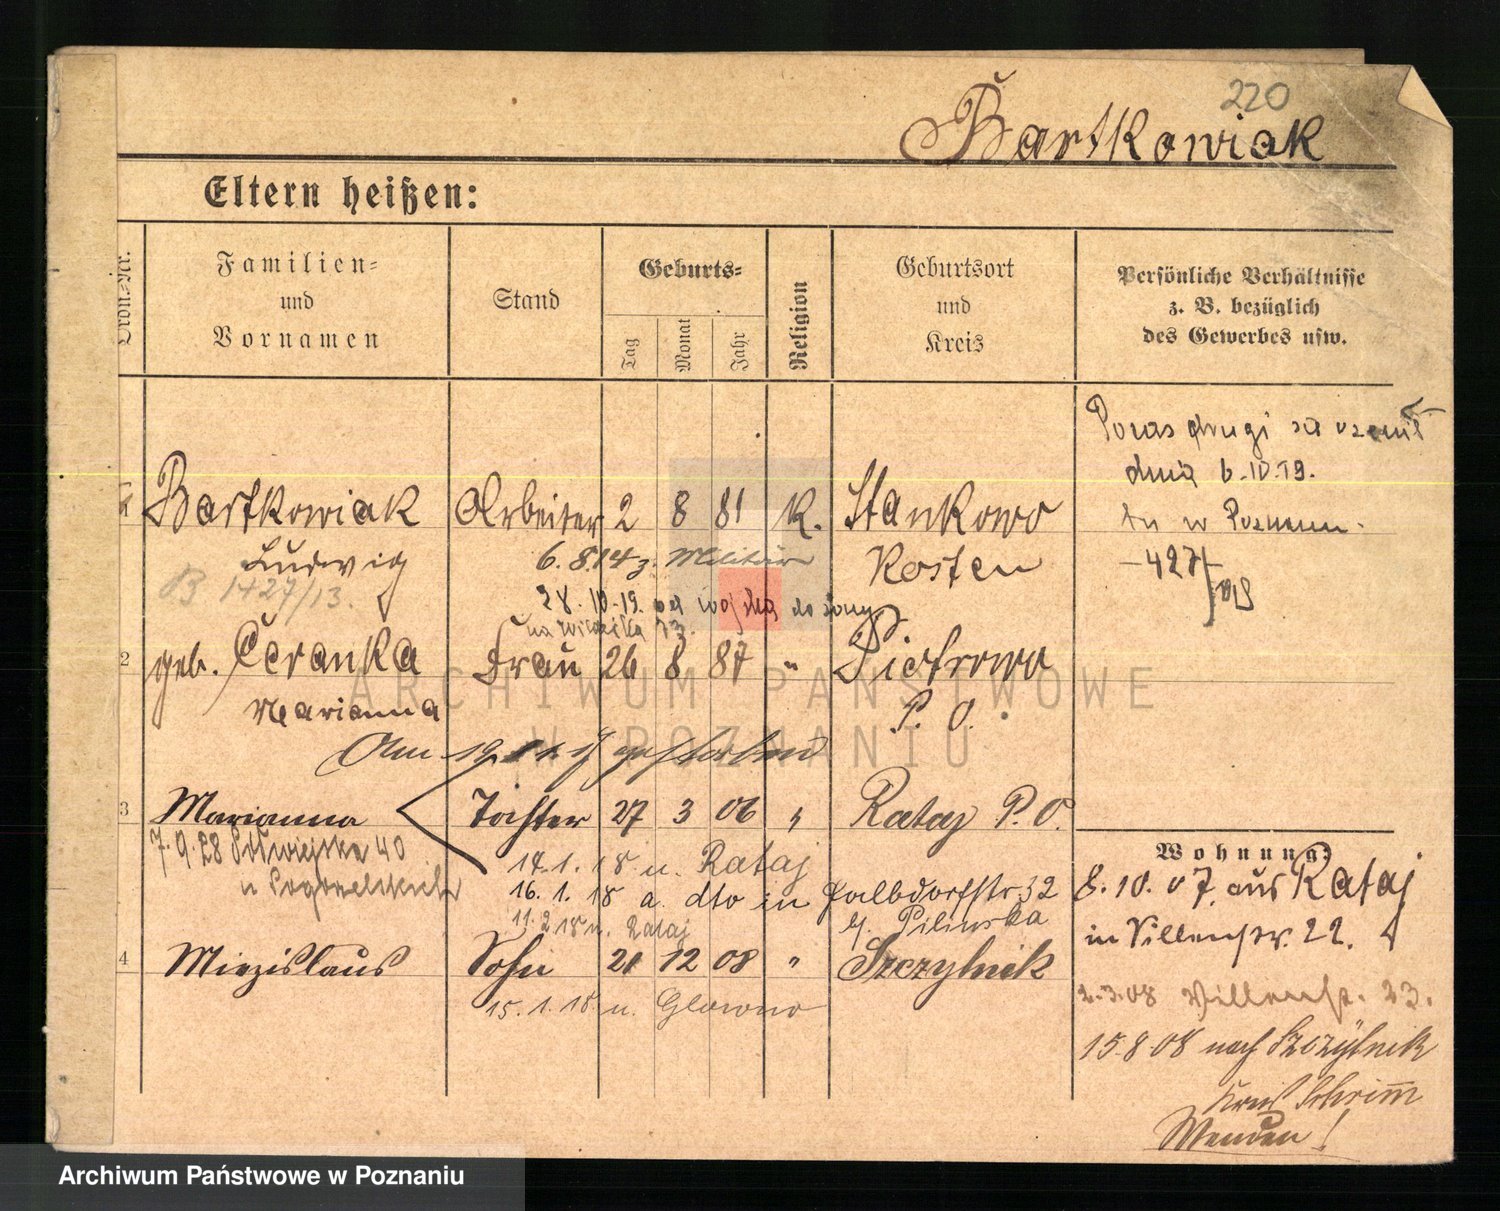 220
Bartkowiak
Eltern heißen:
Ordn.-Nr.
Familien- und Vornamen
Stand
Geburts-
Tag
Monat
Jahr
Religion
Geburtsort und Kreis
Persönliche Verhältnisse
z. B. bezüglich
des Gewerbes usw.
dnia 6.IV.19.
tu w Poznaniu.
-427/19
1 Bartkowiak Arbeiter 2 8 81 K. Stankowo
Ludwig 6.8.14 z. Militär Kosten
B 1427/13.
28.IV.19. od wojska do żony
2 geb. Čeranka Frau 26 8 87 " Piotrowo
Marianna P. O.
Am 19. gestorben
3 Marianna Tochter 27 3 06 " Rataj P.O.
7.9.28 Półwiejska 40
14.1.18 u. Rataj
16.1.18 a dto in Halbdorfstr. 32
b/. Pilinska
11.2.18 u. Rataj
4 Miezislaus Sohn 21 12 08 " Szczytnik
15.1.18 u. Glowno
Wohnung:
8.10.07. aus Rataj
in Villenstr. 22.
2.3.08 Villenstr. 23.
15.8.08 nach Szczytnik
Kreis Schrimm
Wenden!
ARCHIWUM PAŃSTWOWE
W POZNANIU
Archiwum Państwowe w Poznaniu